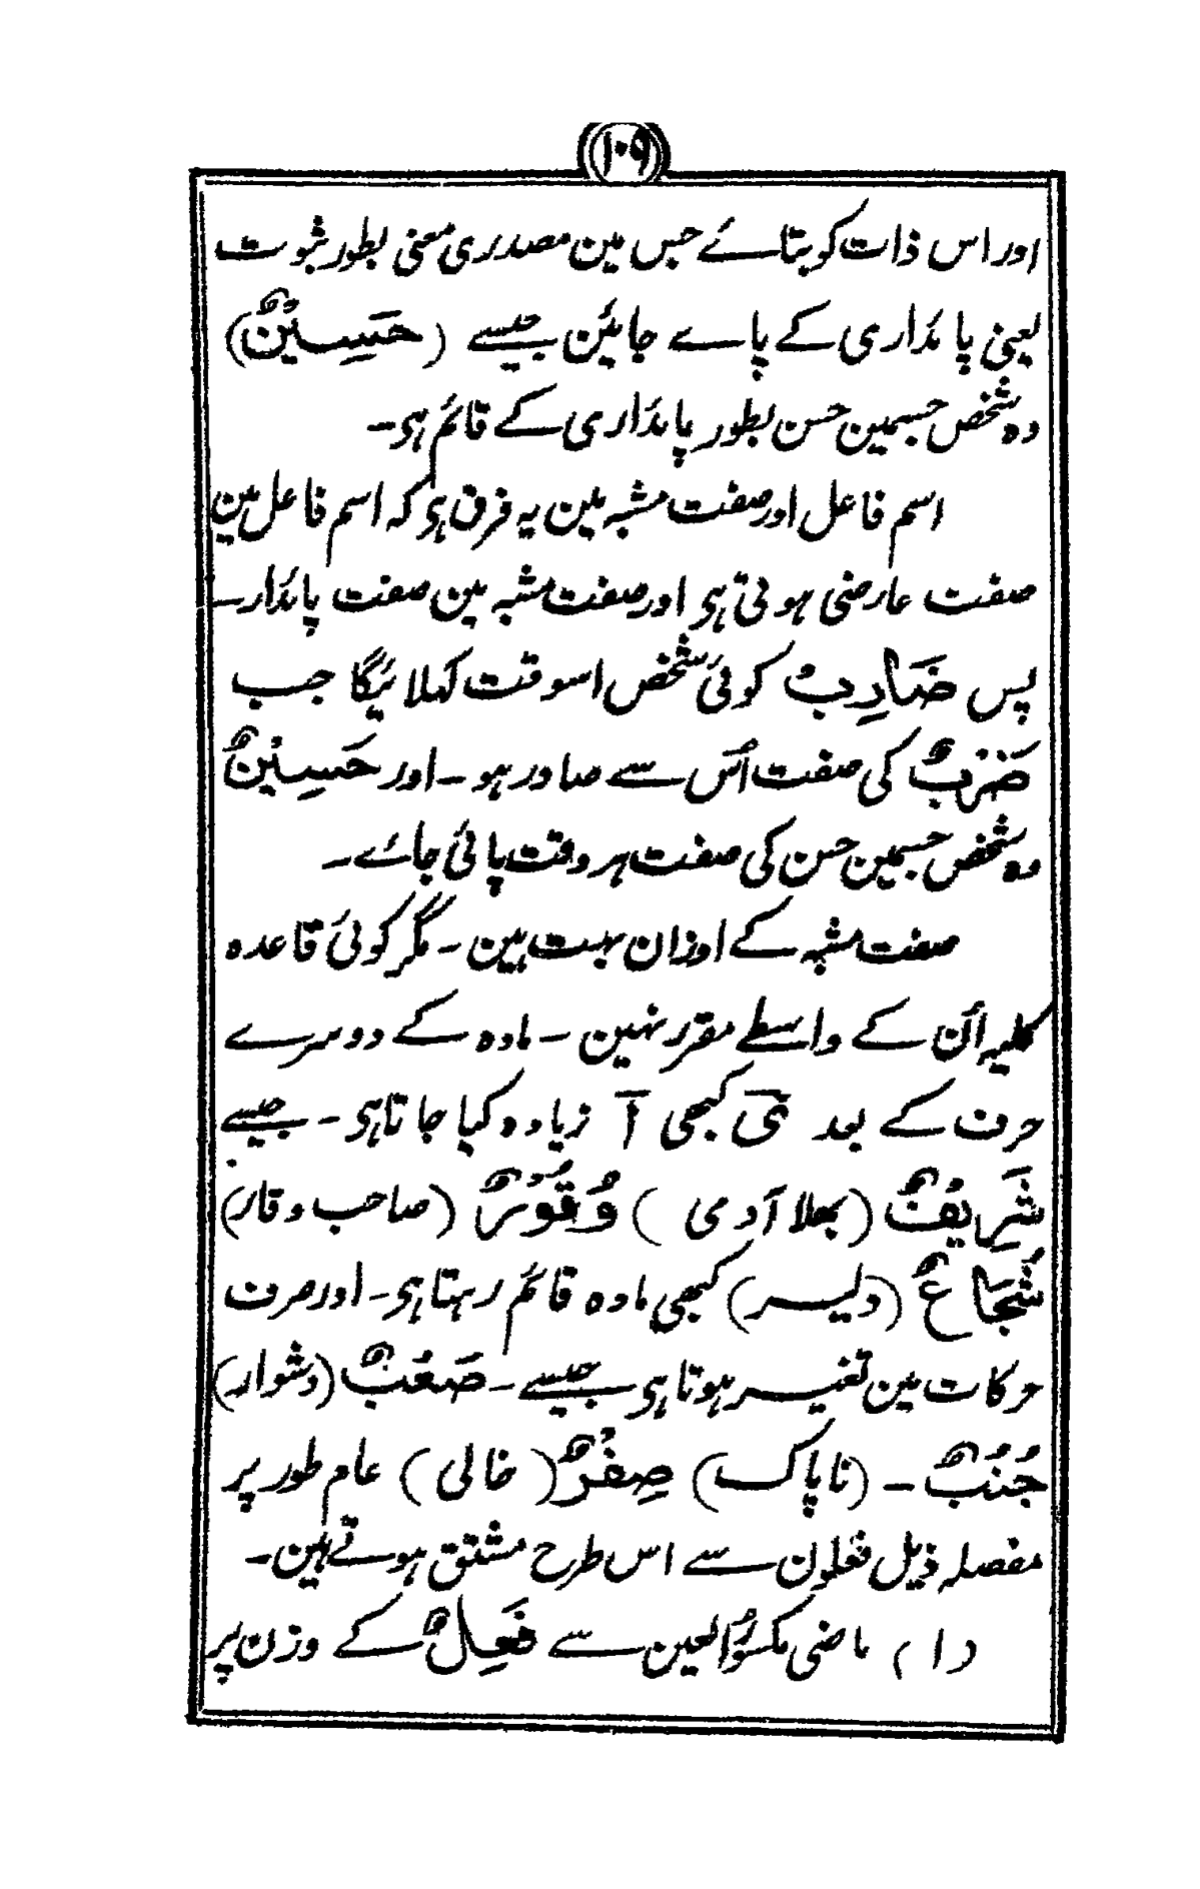 ۱۰۹
اور اس ذات کو بتائے جس مین مصدری معنی بطور ثبوت
یعنی پائداری کے پاے جائین جیسے (حَسِیْنٌ)
وہ شخص جسمین حسن بطور پائداری کے قائم ہو۔
اسم فاعل اور صفت مشبہ مین یہ فرق ہی کہ اسم فاعل مین
صفت عارضی ہوتی ہی اور صفت مشبہ مین صفت پائدار۔
پس ضَارِبٌ کوئی شخص اسوقت کہلائیگا جب
ضَرْبٌ کی صفت اُس سے صادر ہو۔ اور حَسِیْنٌ
وہ شخص جسمین حسن کی صفت ہر وقت پائی جائے۔
صفت مشبہ کے اوزان بہت ہین۔ مگر کوئی قاعدہ
کلیہ اُن کے واسطے مقرر نہین۔ مادہ کے دوسرے
حرف کے بعد ی کبھی آ زیادہ کیا جاتا ہی۔ جیسے
شَرِیْفٌ (بھلا آدمی) وَقُوْرٌ (صاحب وقار)
شُجَاعٌ (دلیر) کبھی مادہ قائم رہتا ہی۔ اور صرف
حرکات مین تغیر ہوتا ہی جیسے۔ صَعْبٌ (دشوار)
جُنُبٌ۔ (ناپاک) صِفْرٌ (خالی) عام طور پر
مفصلہ ذیل فعلون سے اس طرح مشتق ہوتے ہین۔
(۱) ماضی مکسورُ العین سے فَعِلٌ کے وزن پر